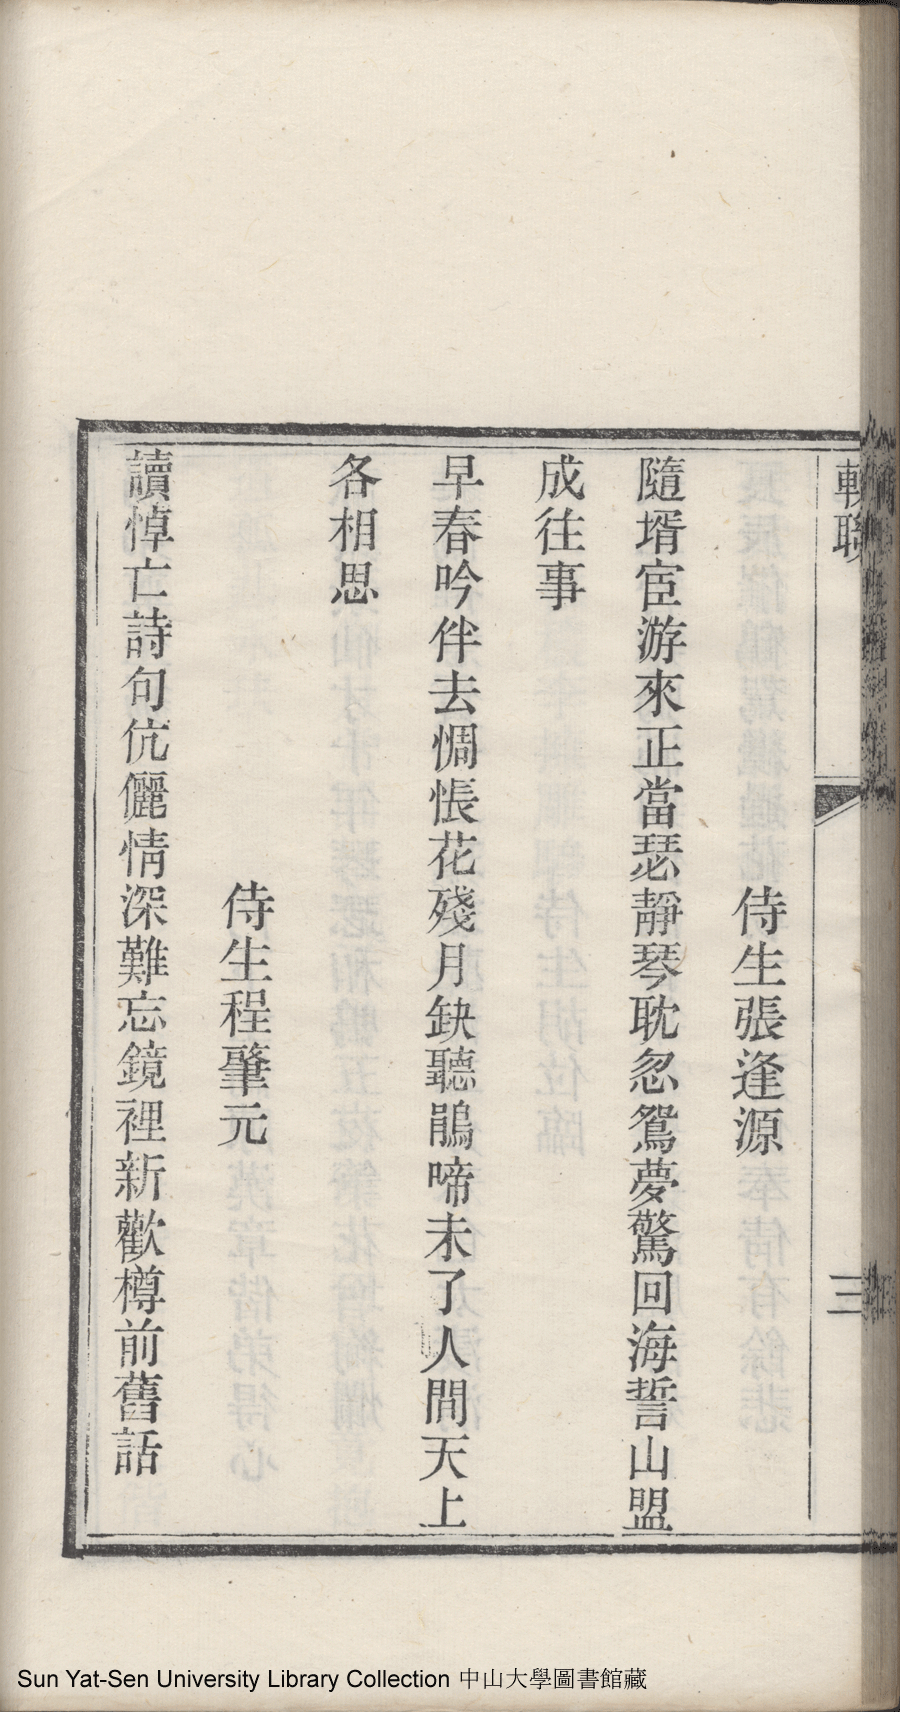 輓聯
三
侍生張逢源
隨壻宦游來正當瑟靜琴耽忽鴛夢驚回海誓山盟
成往事
早春吟伴去惆悵花殘月缺聽鵑啼未了人間天上
各相思
侍生程肇元
讀悼亡詩句伉儷情深難忘鏡裡新歡樽前舊話
Sun Yat-Sen University Library Collection 中山大學圖書館藏